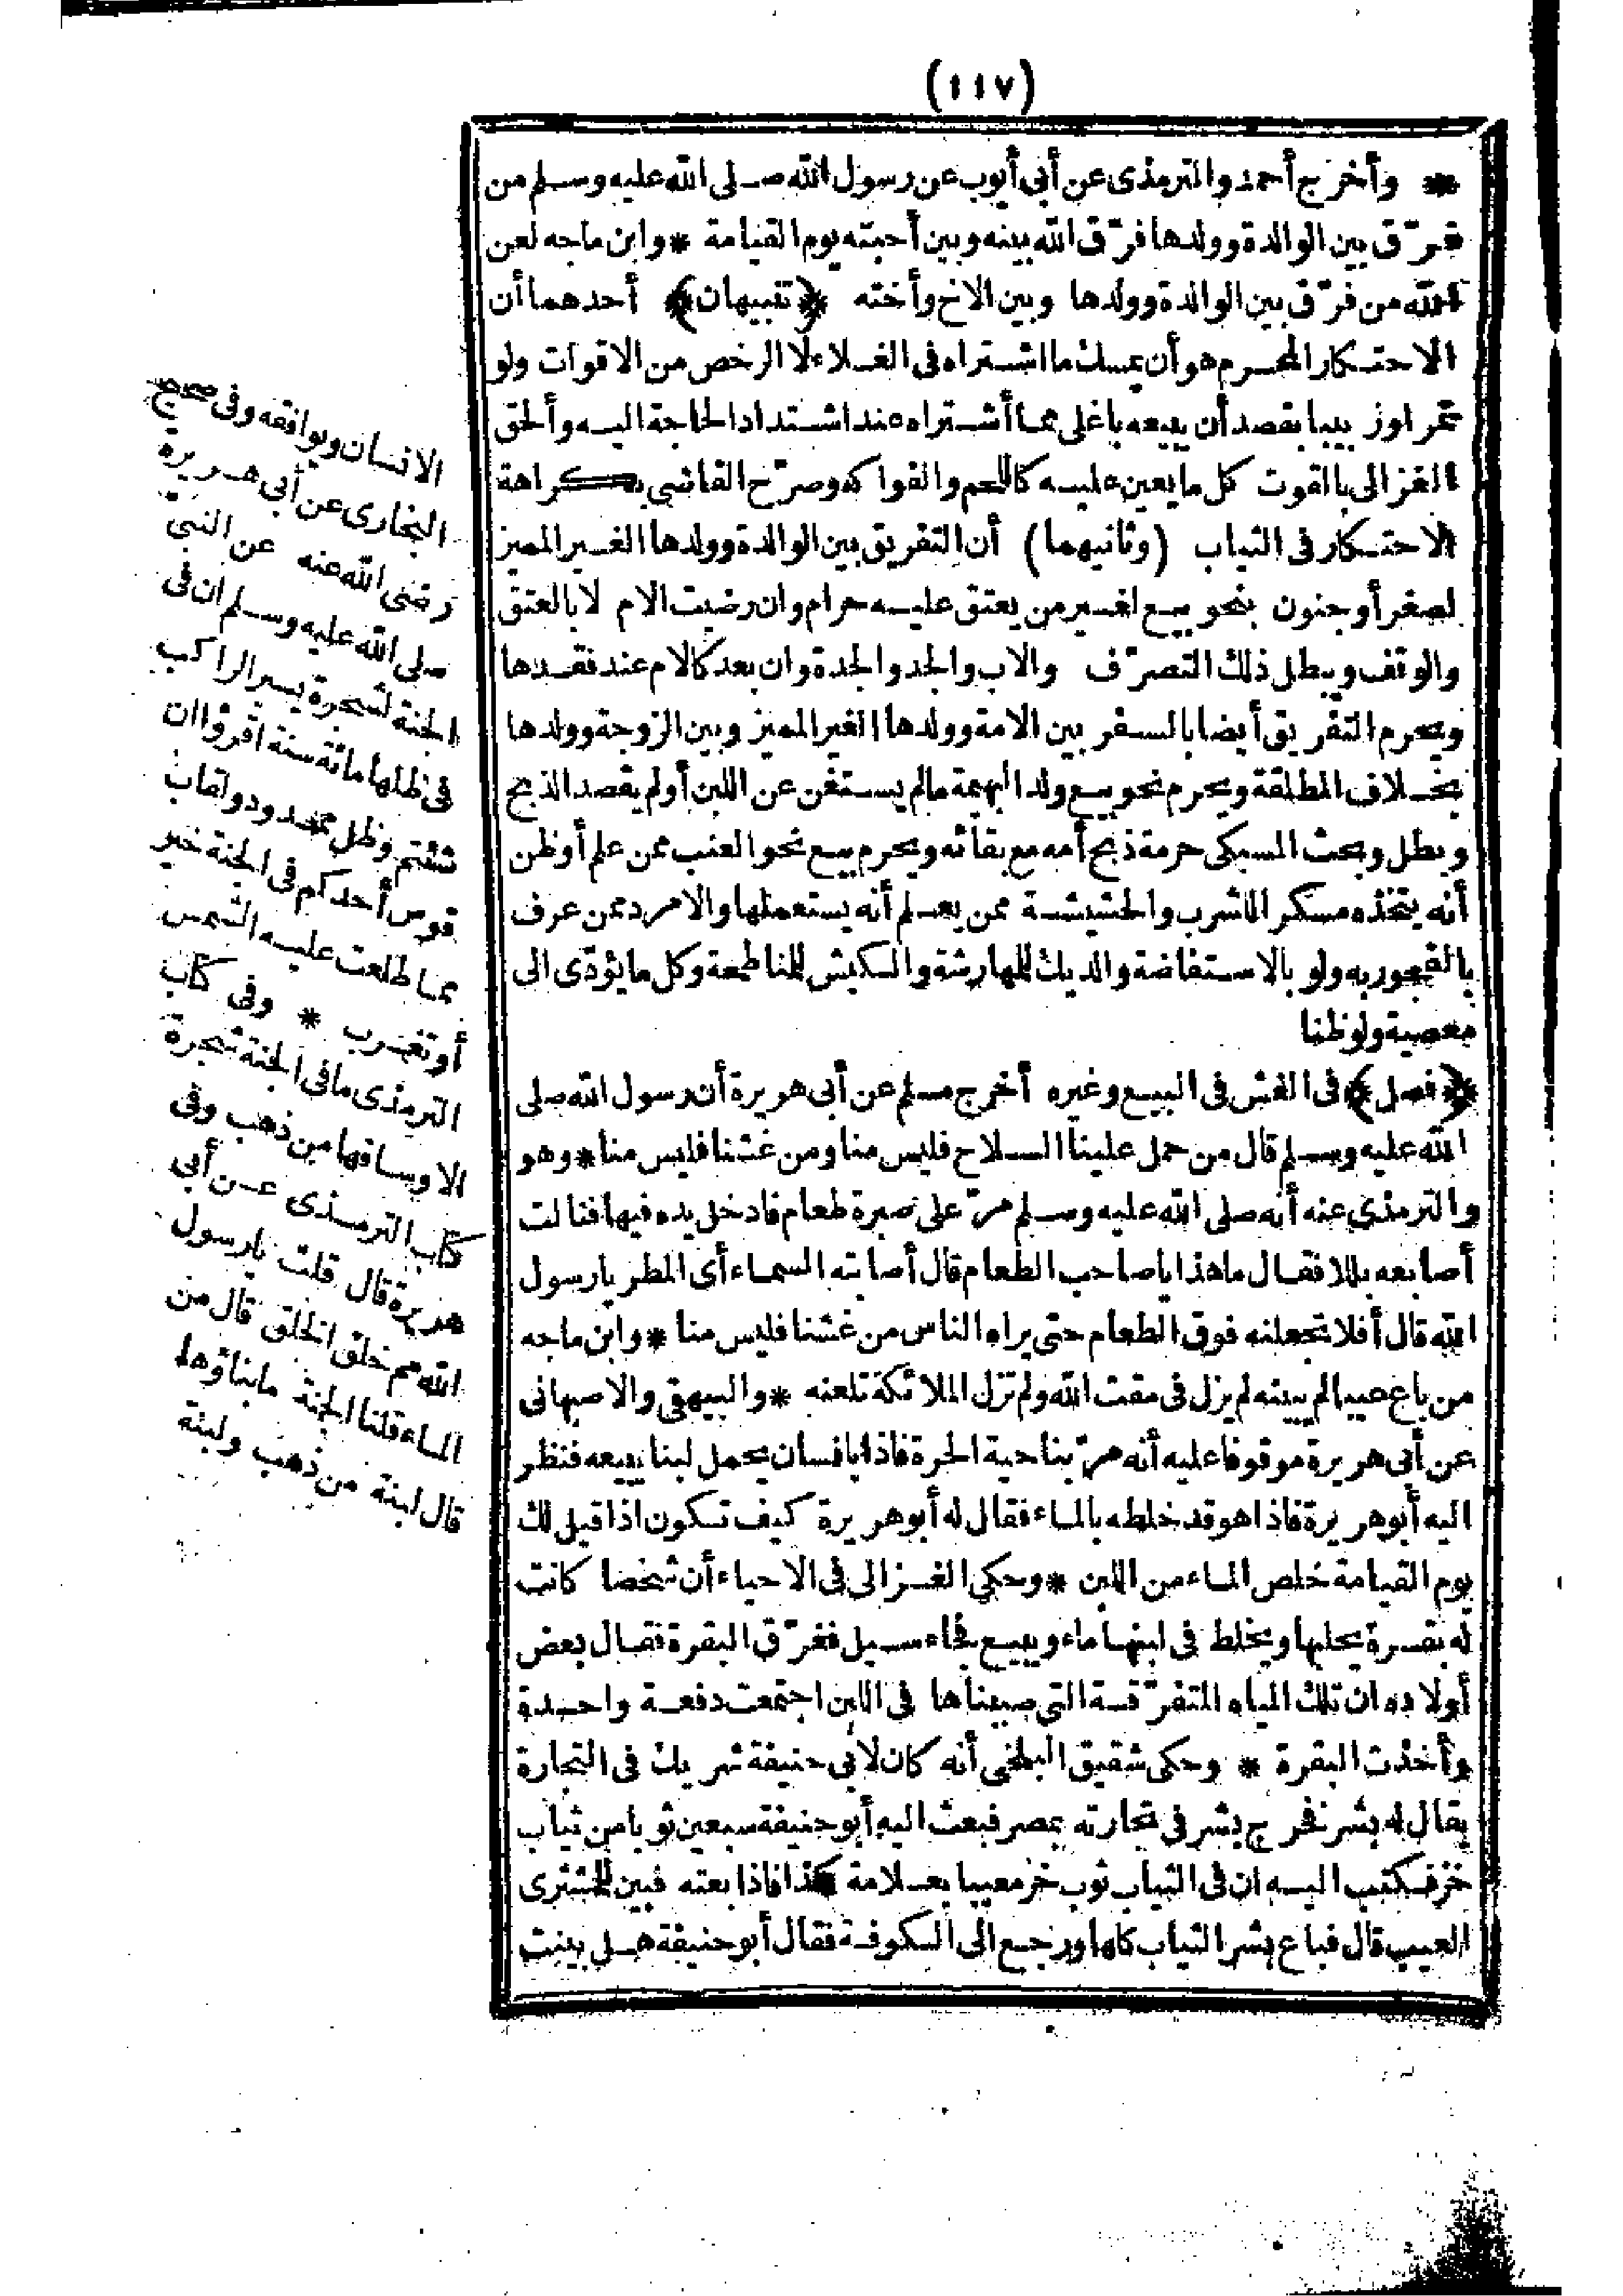 (١١٧)
* وأخرج أحمد والترمذى عن أبى أيوب عن رسول الله صلى الله عليه وسلم من
فرّق بين الوالدة وولدها فرّق الله بينه وبين أحبته يوم القيامة * وابن ماجه لعن
الله من فرّق بين الوالدة وولدها وبين الاخ وأخته ﴿تنبيهان﴾ أحدهما أن
الاحتكار المحرم هو أن يمسك ما اشتراه فى الغلاء لا الرخص من الاقوات ولو
تمرا وزبيبا بقصد أن يبيعه باغلى مما أشتراه عند اشتداد الحاجة اليه وألحق
الغزالى بالقوت كل ما يعين عليه كاللحم والفواكه وصرّح القاضى بكراهة
الاحتكار فى الثياب (وثانيهما) أن التفريق بين الوالدة وولدها الغير المميز
لصغر أو جنون بنحو بيع لغير من يعتق عليه حرام وان رضيت الام لا بالعتق
والوقف ويبطل ذلك التصرّف والاب والجد والجدة وان بعد كالام عند فقدها
ويحرم التفريق أيضا بالسفر بين الامة وولدها الغير المميز وبين الزوجة وولدها
بخلاف المطلقة ويحرم نحو بيع ولد البهيمة مالم يستغن عن اللبن أو لم يقصد الذبح
وبطل وبحث السبكى حرمة ذبح أمه مع بقائه ويحرم بيع نحو العنب ممن علم أو ظن
أنه يتخذه مسكرا للشرب والحشيشة ممن يعلم أنه يستعملها والامرد ممن عرف
بالفجور به ولو بالاستفاضة والديك للمهارشة والكبش للمناطحة وكل ما يؤدى الى
معصية ولو ظنا
﴿فصل﴾ فى الغش فى البيع وغيره أخرج مسلم عن أبى هريرة أن رسول الله صلى
الله عليه وسلم قال من حمل علينا السلاح فليس منا ومن غشنا فليس منا * وهو
والترمذى عنه أنه صلى الله عليه وسلم مرّ على صبرة طعام فادخل يده فيها فنالت
أصابعه بللا فقال ما هذا يا صاحب الطعام قال أصابته السماء أى المطر يا رسول
الله قال أفلا تجعلنه فوق الطعام حتى يراه الناس من غشنا فليس منا * وابن ماجه
من باع عيبا لم يبينه لم يزل فى مقت الله ولم تزل الملائكة تلعنه * والبيهقى والاصبهانى
عن أبى هريرة موقوفا عليه أنه مرّ بناحية الحرة فاذا بانسان يحمل لبنا يبيعه فنظر
اليه أبو هريرة فاذا هو قد خلطه بالماء فقال له أبو هريرة كيف تكون اذا قيل لك
يوم القيامة خلص الماء من اللبن * وحكى الغزالى فى الاحياء أن شخصا كانت
له بقرة يحلبها ويخلط فى لبنها ماء ويبيع فجاء سيل فغرّق البقرة فقال بعض
أولاده ان تلك المياه المتفرّقة التى صببناها فى اللبن اجتمعت دفعة واحدة
وأخذت البقرة * وحكى شقيق البلخى أنه كان لابى حنيفة شريك فى التجارة
يقال له بشر فخرج بشر فى تجارته بمصر فبعث اليه أبو حنيفة سبعين ثوبا من ثياب
خز فكتب اليه ان فى الثياب ثوب خز معيبا بعلامة كذا فاذا بعته فبين للمشترى
العيب قال فباع بشر الثياب كلها ورجع الى الكوفة فقال أبو حنيفة هل بينت
الانسان ويوافقه وفى صحيح
البخارى عن أبى هريرة
رضى الله عنه عن النبى
صلى الله عليه وسلم ان فى
الجنة لشجرة يسير الراكب
فى ظلها مائة سنة اقرؤا ان
شئتم وظل ممدود ولقاب
قوس أحدكم فى الجنة خير
مما طلعت عليه الشمس
أو تغرب * وفى كتاب
الترمذى ما فى الجنة شجرة
الا وساقها من ذهب وفى
كتاب الترمذى عن أبى
هريرة قال قلت يا رسول
الله مم خلق الخلق قال من
الماء قلنا الجنة ما بناؤها
قال لبنة من ذهب ولبنة